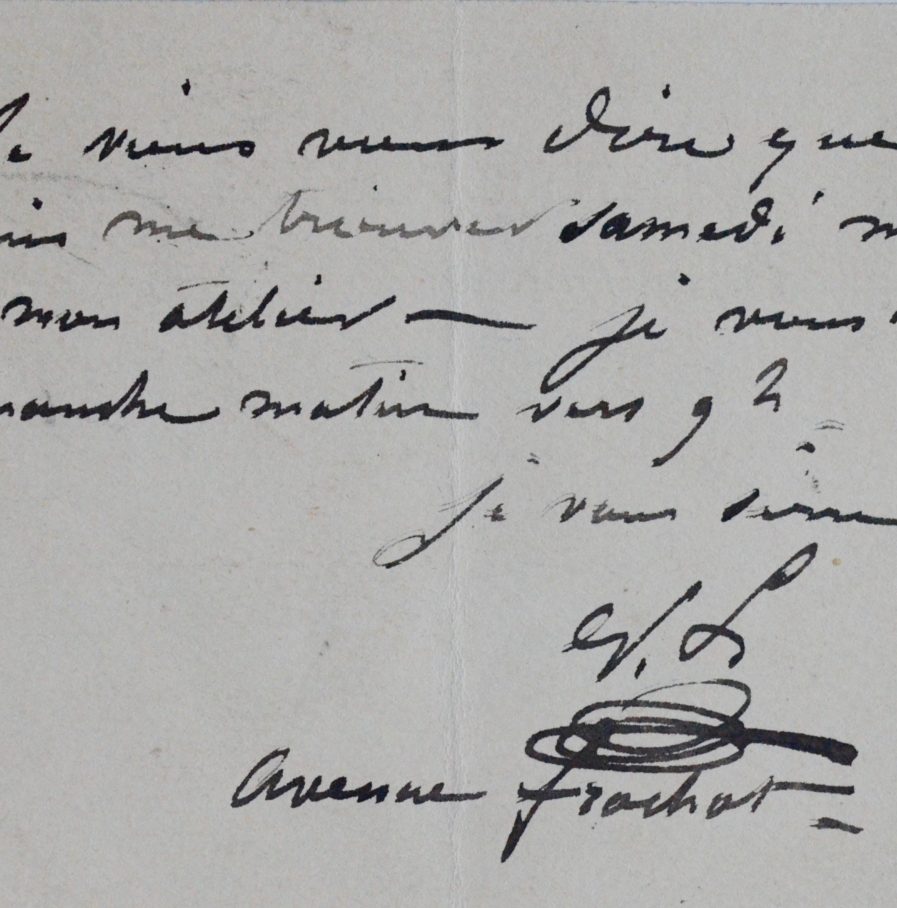 Je viens vous dire que
me trouver samedi
mon atelier — je vous
manche matin vers 9 h
je vous serre
V. L
Avenue frochot